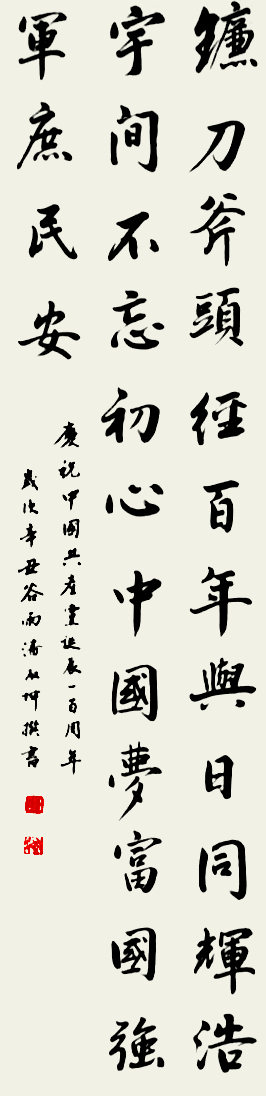 鐮刀斧頭經百年與日同輝浩
宇间不忘初心中國夢富國強
軍庶民安
慶祝中國共產黨誕辰一百周年
歲次辛丑谷雨潘坤撰書